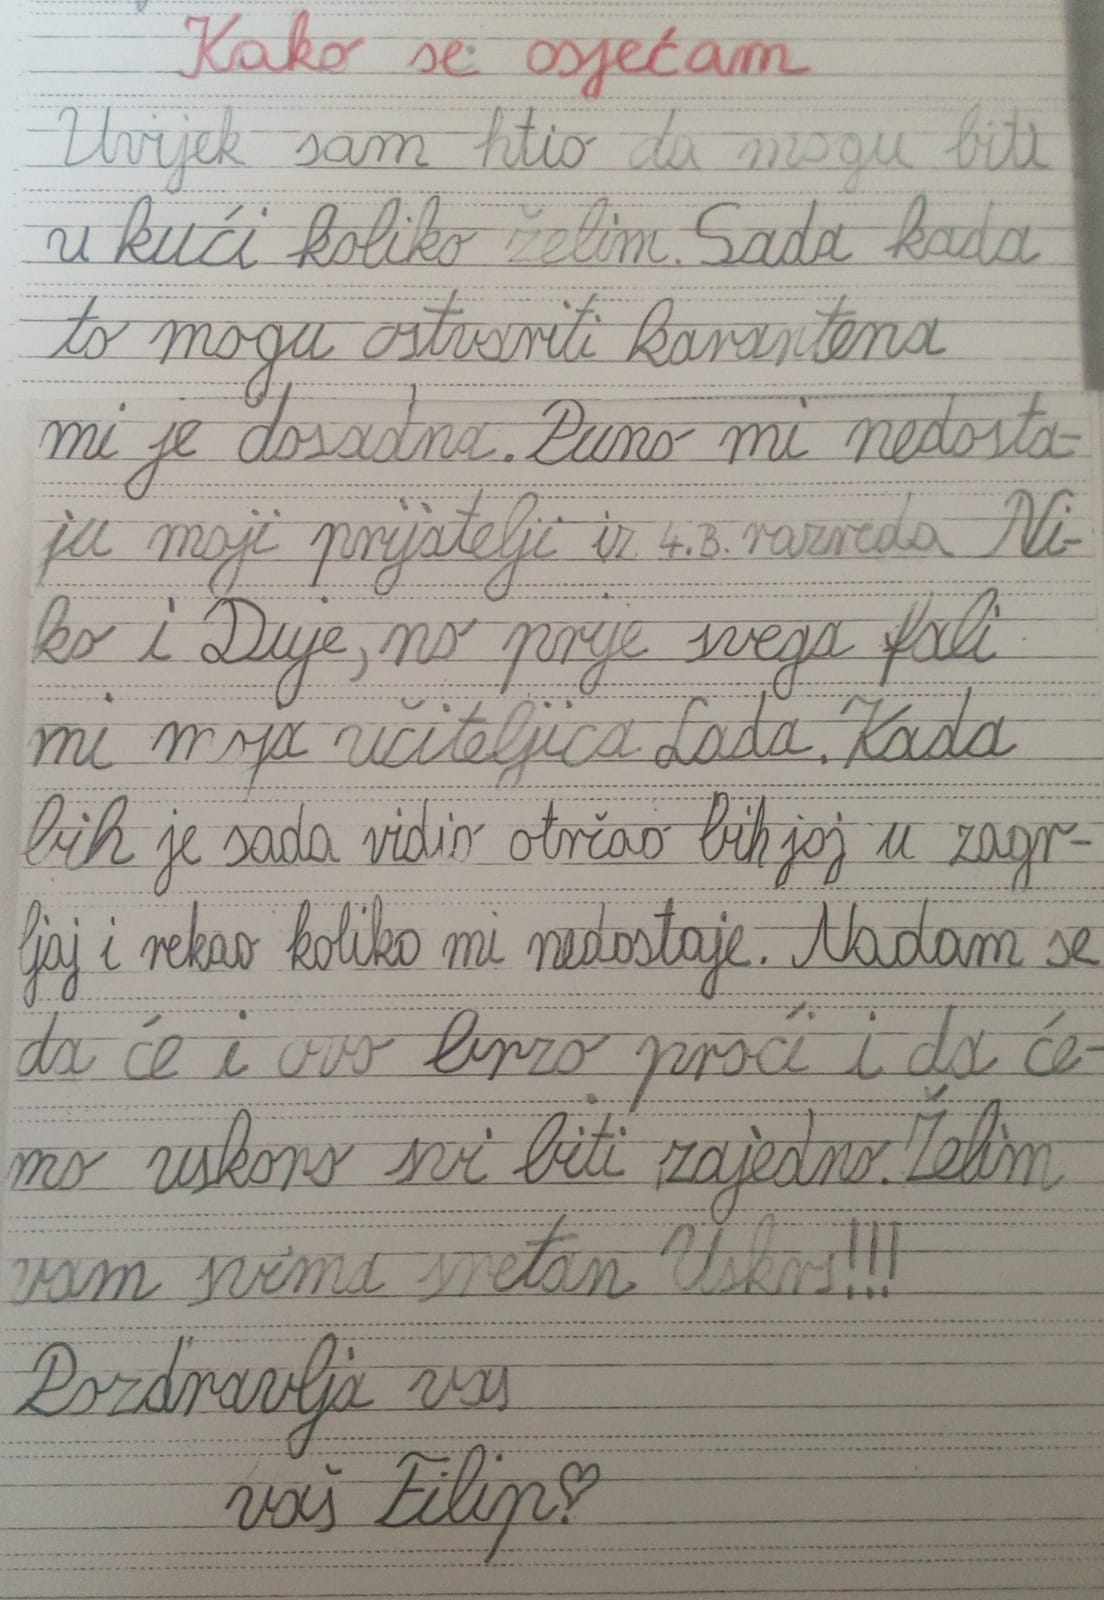 Kako se osjećam
Uvijek sam htio da mogu biti
u kući koliko želim. Sada kada
to mogu ostvariti karantena
mi je dosadna. Puno mi nedosta-
ju moji prijatelji iz 4.B. razreda Ni-
ko i Duje, no prije svega fali
mi moja učiteljica Lada. Kada
bih je sada vidio otrčao bih joj u zagr-
ljaj i rekao koliko mi nedostaje. Nadam se
da će i ovo brzo proći i da će-
mo uskoro svi biti zajedno. Želim
vam svima sretan Uskrs!!!
Pozdravlja vas
vaš Filip♡